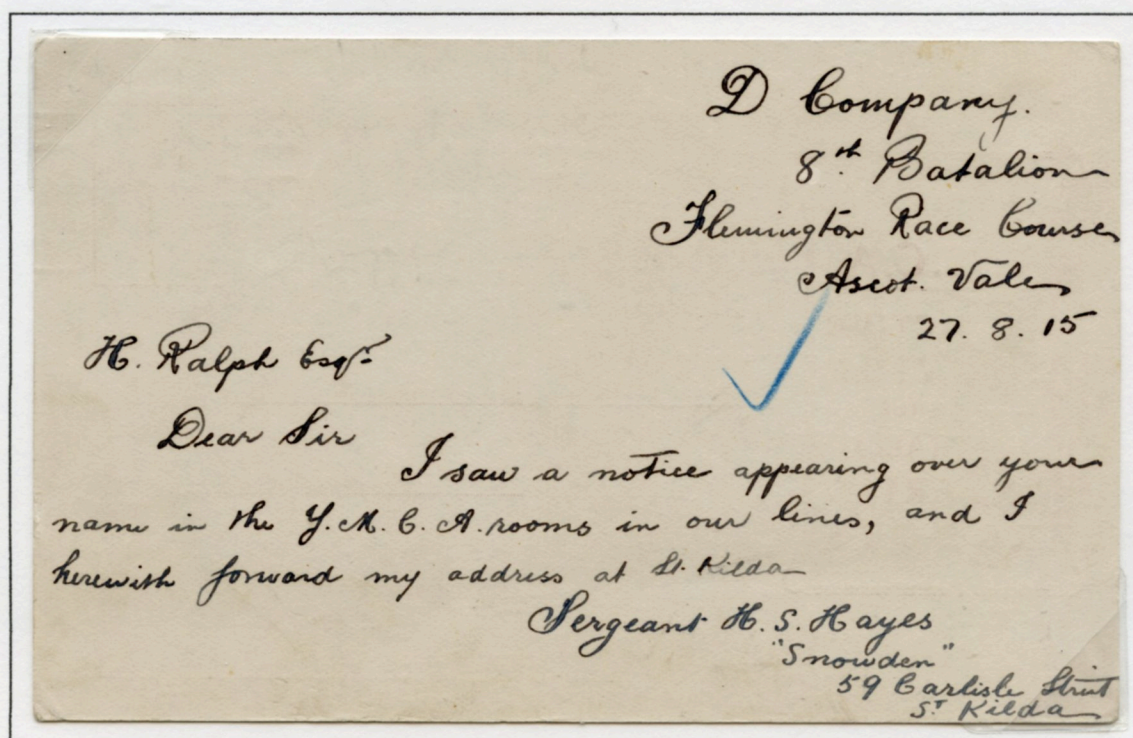 D Company.
8th Batalion
Flemington Race Course
Ascot. Vale
27. 8. 15
H. Ralph Esqr.
Dear Sir
I saw a notice appearing over your
name in the Y. M. C. A. rooms in our lines, and I
herewith forward my address at St. Kilda
Sergeant H. S. Hayes
"Snowden"
59 Carlisle Street
St Kilda